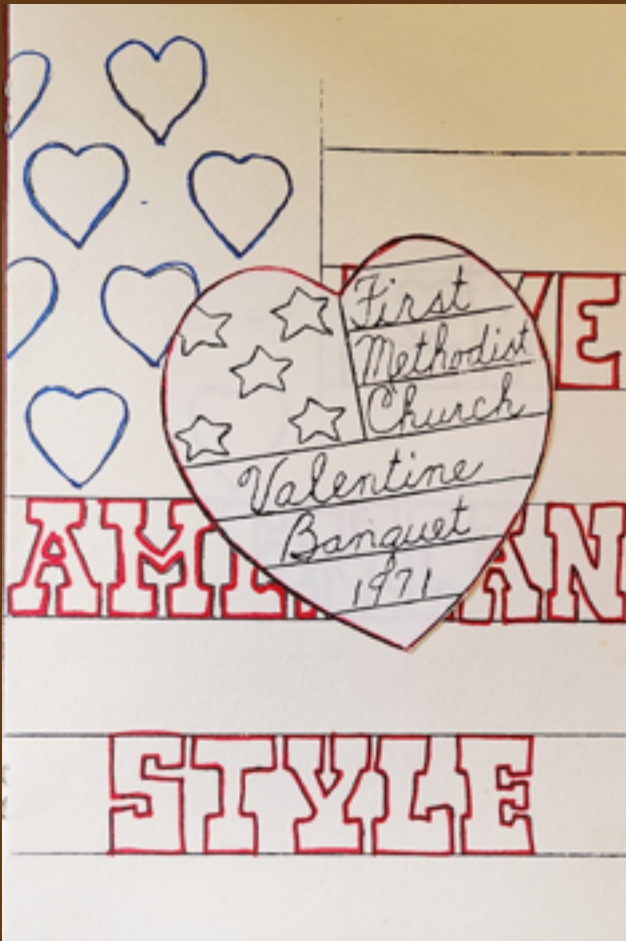 First
Methodist
Church
Valentine
Banquet
1971
VE
AM AN
STYLE